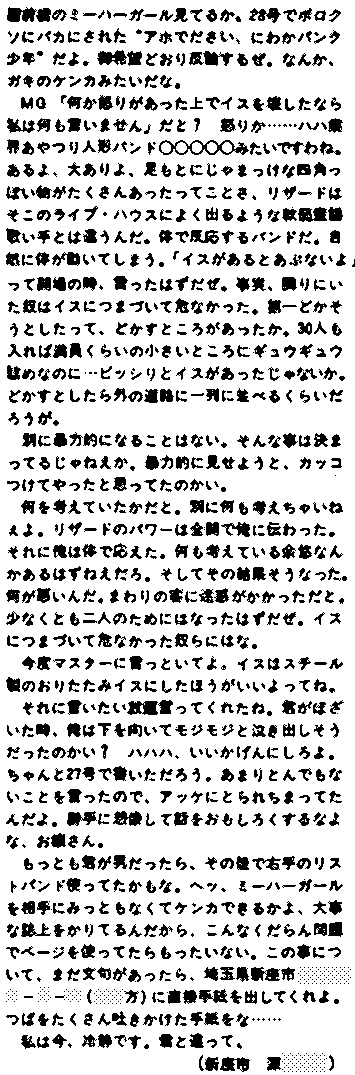 前橋のミーハーガール見てるか。28号でボロク
ソにバカにされた“アホでださい、にわかパンク
少年”だよ。御希望どおり反論するぜ。なんか、
ガキのケンカみたいだな。
MG「何か怒りがあった上でイスを壊したなら
私は何も言いません」だと？　怒りか……ハハ業
界あやつり人形バンド〇〇〇〇〇みたいですわね。
あるよ、大ありよ、足もとにじゃまっけな四角っ
ぽい物がたくさんあったってことさ、リザードは
そこのライブ・ハウスによく出るような
歌い手とは違うんだ。体で反応するバンドだ。自
然に体が動いてしまう。「イスがあるとあぶないよ」
って開場の時、言ったはずだぜ。事実、隣りにい
た奴はイスにつまづいて危なかった。第一どかそ
うとしたって、どかすところがあったか。30人も
入れば満員くらいの小さいところにギュウギュウ
詰めなのに…ビッシリとイスがあったじゃないか。
どかすとしたら外の道路に一列に並べるくらいだ
ろうが。
別に暴力的になることはない。そんな事は決ま
ってるじゃねえか。暴力的に見せようと、カッコ
つけてやったと思ってたのかい。
何を考えていたかだと。別に何も考えちゃいね
ぇよ。リザードのパワーは全開で俺に伝わった。
それに俺は体で応えた。何も考えている余裕なん
かあるはずねえだろ。そしてその結果そうなった。
何が悪いんだ。まわりの客に迷惑がかかっただと。
少なくとも二人のためにはなったはずだぜ。イス
につまづいて危なかった奴らにはな。
今度マスターに言っといてよ。イスはスチール
製のおりたたみイスにしたほうがいいよってね。
それに言いたい放題言ってくれたね。君がほざ
いた時、俺は下を向いてモジモジと泣き出しそう
だったのかい？　ハハハ、いいかげんにしろよ。
ちゃんと27号で書いただろう。あまりとんでもな
いことを言ったので、アッケにとられちまってた
んだよ。勝手に想像して話をおもしろくするなよ
な、お嬢さん。
もっとも君が男だったら、その後で右手のリス
トバンド使ってたかもな。ヘッ、ミーハーガール
を相手にみっともなくてケンカできるかよ、大事
な誌上をかりてるんだから、こんなくだらん問題
でページを使ってたらもったいない。この事につ
いて、まだ文句があったら、埼玉県新座市
－－（方）に直接手紙を出してくれよ。
つばをたくさん吐きかけた手紙をな……
私は今、冷静です。君と違って、
（新座市　源　）